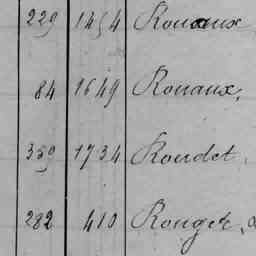 229 1454 Rouaux
84 1649 Rouaux,
359 1734 Roudet,
282 410 Rouget,